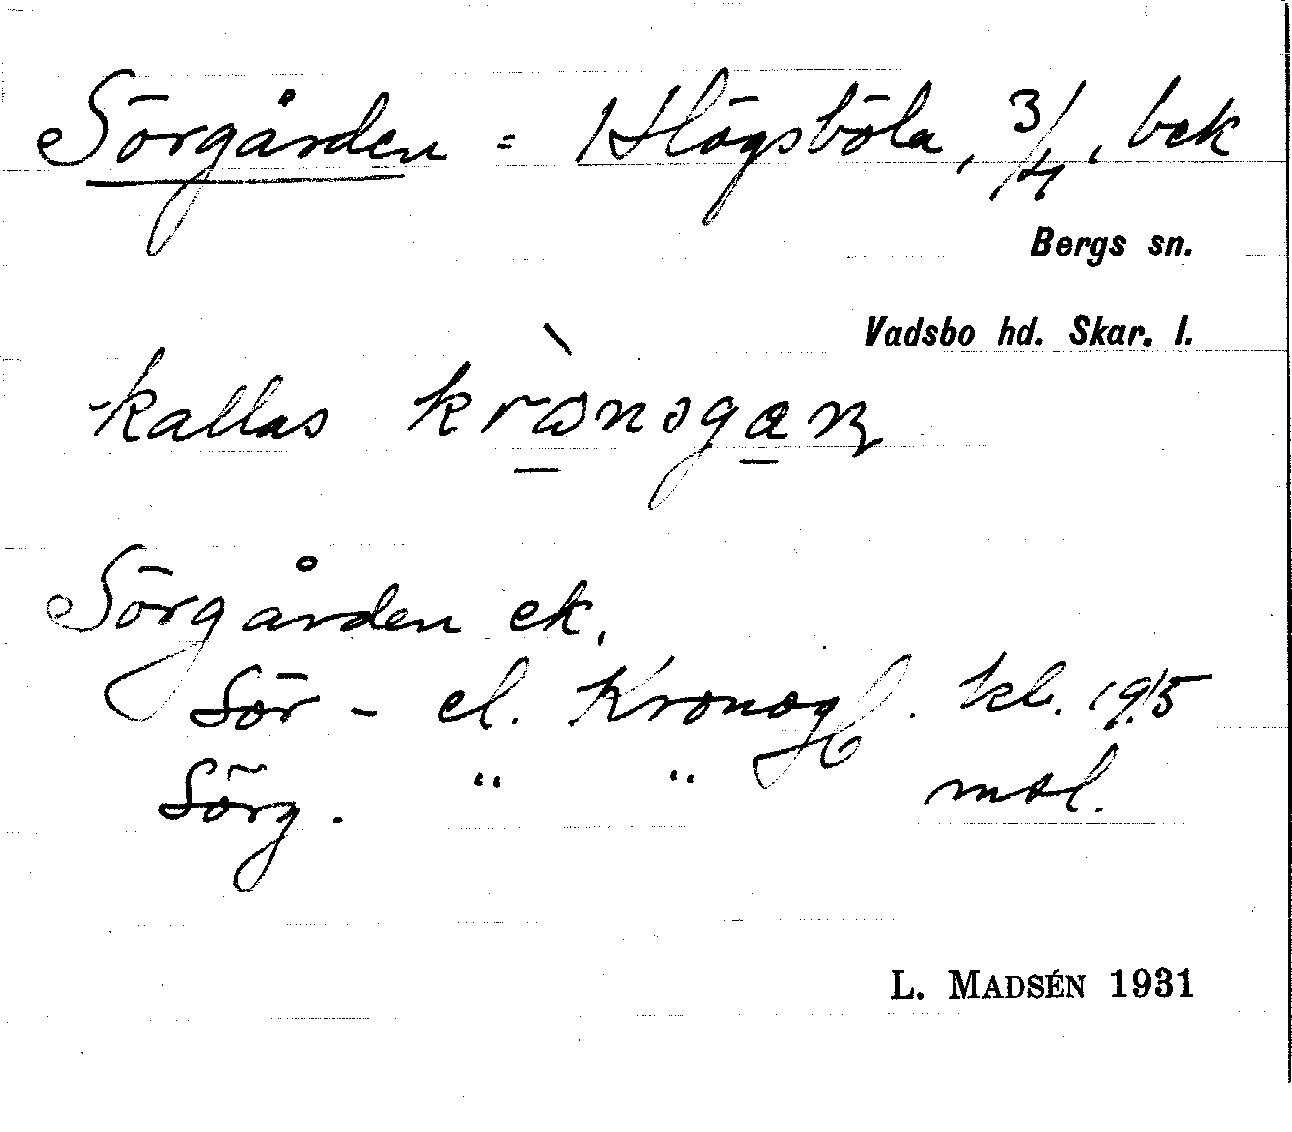 Sörgården = Högsböla, 3/4, bek
Bergs sn.
Vadsbo hd. Skar. l.
kallas
Sörgården ek,
Sör- el. Kronog. kb. 1915
Sörg. " " msl.
L. MADSÉN 1931